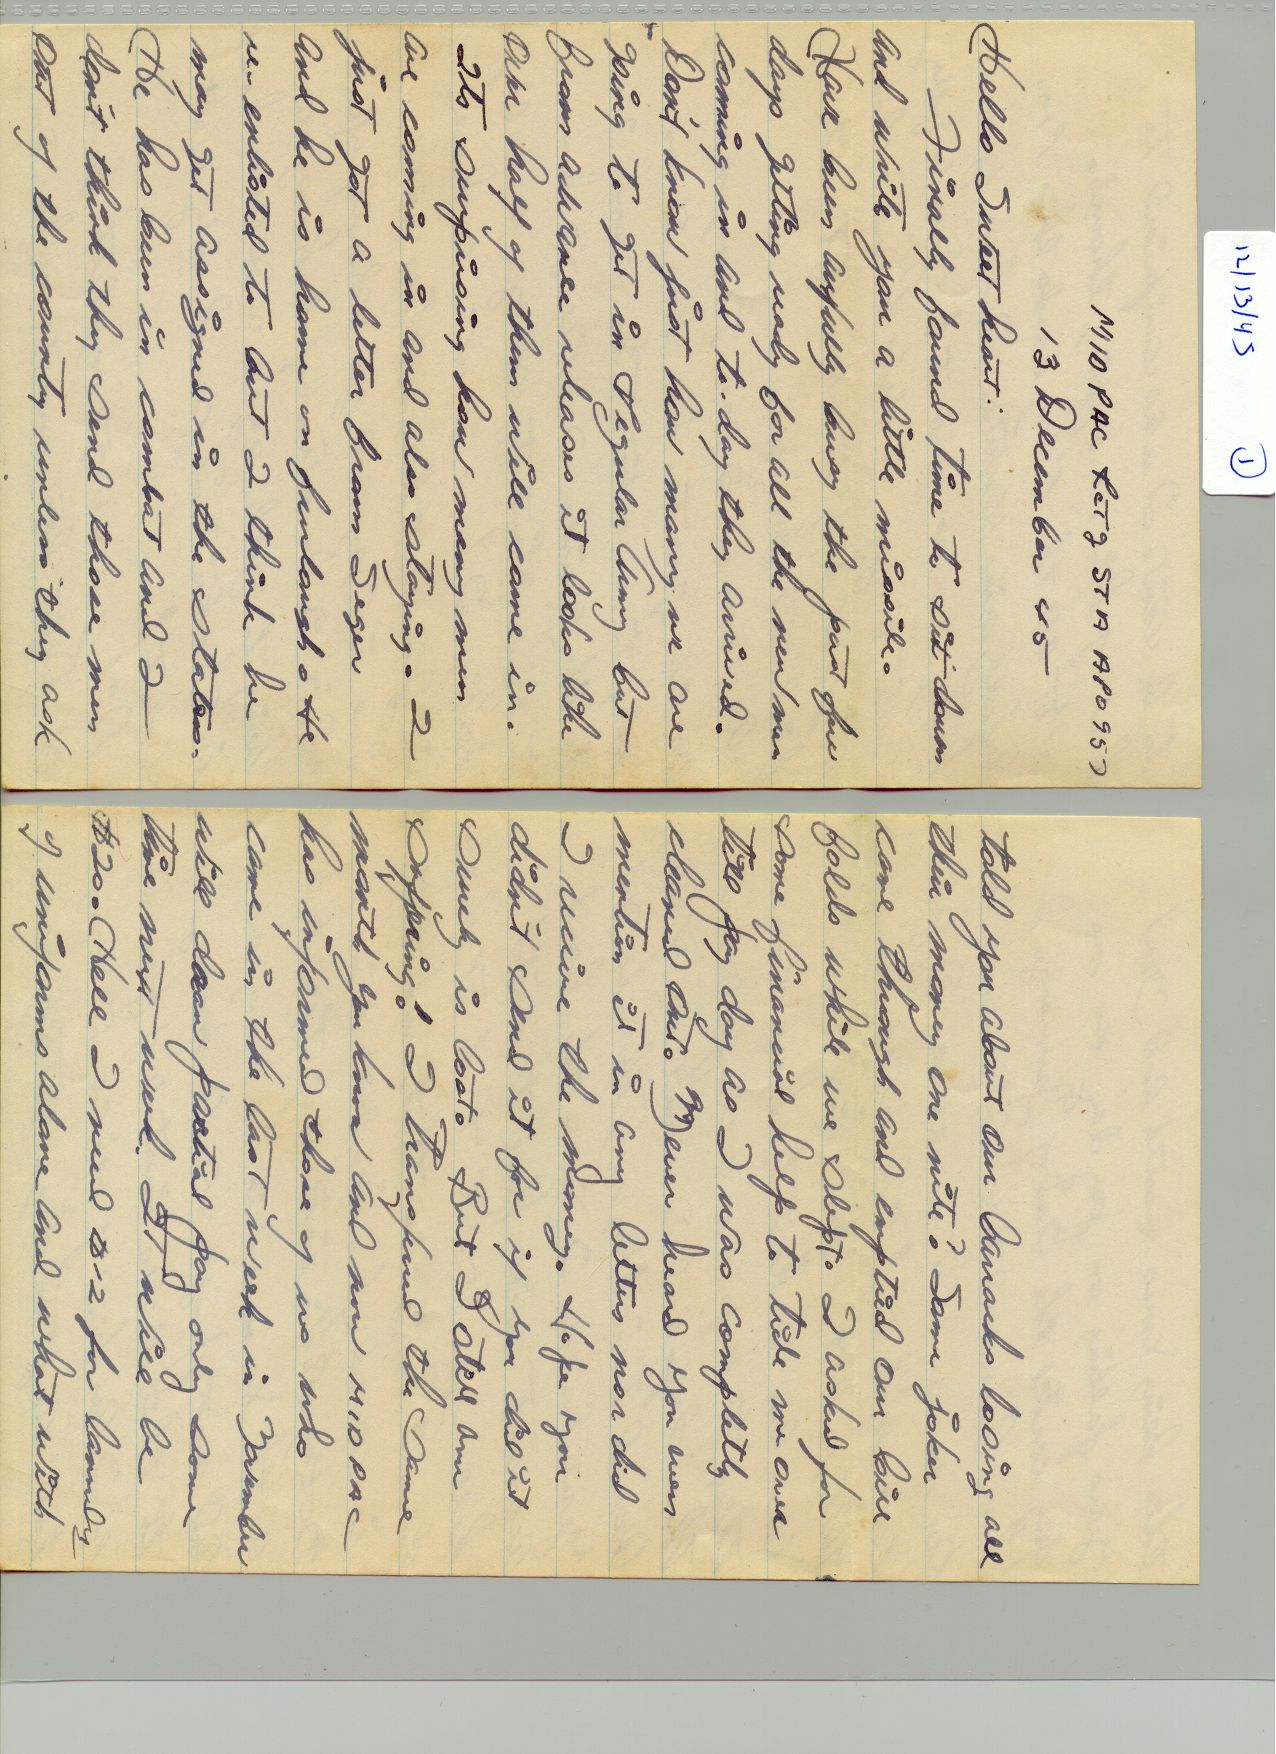 12/13/45 ①
MIDPAC Retg STA APO 957
13 December 45
Hello Sweet heart:
Finally found time to sit down
and write you a little missile.
Have been awfully busy the past few
days getting ready for all the new men
coming in and to-day they arrived.
Don't know just how many we are
going to get in Regular Army but
from advance releases it looks like
over half of them will come in.
Its surprising how many men
are coming in and also staying. I
just got a letter from Seger
and he is home on furlough. He
re-enlisted to but I think he
may get assigned in the states.
He has been in combat and I
don't think they send those men
out of the country unless they ask
told you about our barracks losing all
thier money one nite? Some joker
came through and emptied our bill
folds while we slept. I asked for
some financial help to tide me over
till pay day as I was completly
cleaned out. Never heard you even
mention it in any letters nor did
I recive the money. Hope you
didn't send it for if you did it
surely is lost. But I still am
suffering! I transfered the same
month you know and now MIDPAC
has informed those of us who
came in the last week in November
will draw partial pay only some
time next week. It will be
$20. Hell I need $12 for laundry
of uniforms alone and what with